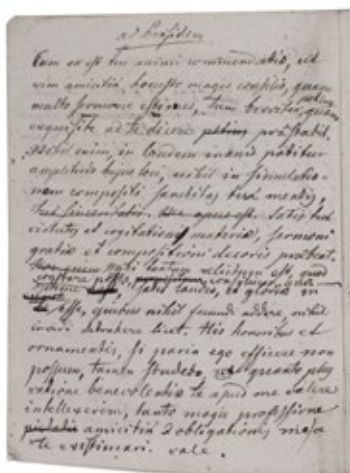 ad Praesidem
Cum ea est tui animi commendatio, ut
vim amicitiæ, honesto magis consilio, quam
multo sermone estimes, tum breviter potius, quam
exquisite ad te dicere præstabit.
Nihil enim, in laudem inanis patitur
amplitudo hujus loci, nihil in simulatio-
nem compositi sanctitas tuæ mentis,
Satis tua
virtutes et cogitationi materiæ, sermoni
gratiæ et compositioni decoris præbeat.
mihi tantum relictum est, quod
satis laudis, et gloriæ in
te esse, quibus nihil fecundi addere, nihil
invidi detrahere licet. His honoribus et
ornamentis, si paria ego efficere non
possum, tamen studebo, quanto plus
ratione benevolentiæ te apud me valere
intellexerim, tanto magis professione
amicitiæ & obligationis meæ
te existimari. vale.